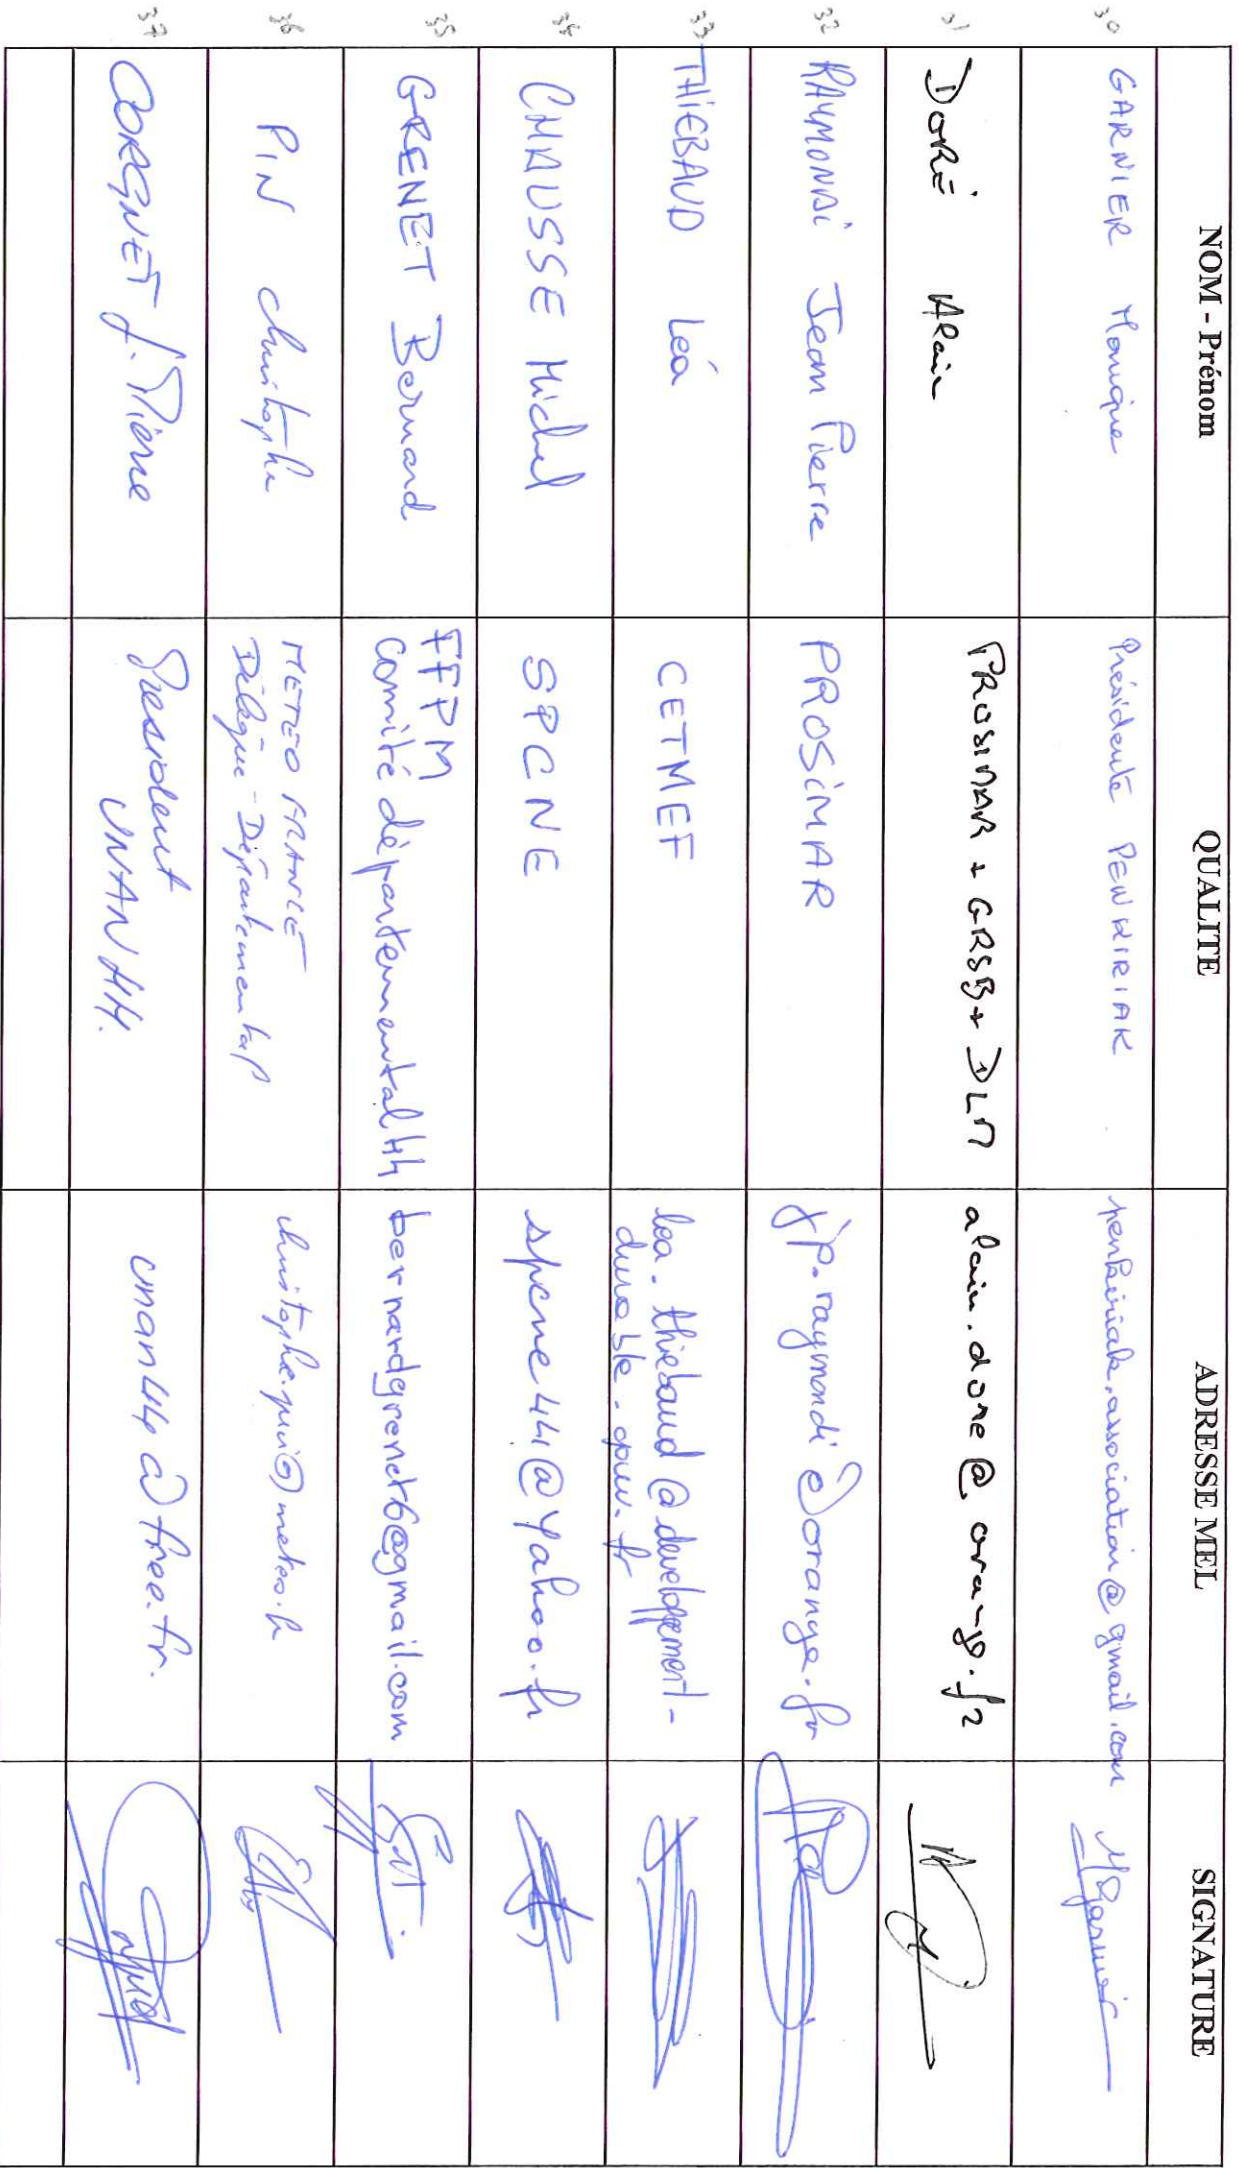 NOM - Prénom QUALITE ADRESSE MEL SIGNATURE
30 GARNIER Monique Présidente PENKIRIAK penkiriak.association@gmail.com MGarnier
31 DORÉ Alain PROSIMAR + GRSB + DLM alain.dore@orange.fr
32 RAYMONDi Jean Pierre PROSiMAR jp.raymondi@orange.fr
33 THiEBAUD Léa CETMEF lea.thiebaud@developpement-
durable.gouv.fr
34 CHAUSSE Michel SPCNE spcne44@yahoo.fr
35 GRENET Bernard FFPM
comité départemental 44 bernardgrenet6@gmail.com
36 PIN Christophe METEO FRANCE
Délégué Départemental christophe.pin@meteo.fr
37 CORGNET J. Pierre President
UNAN 44. unan44@free.fr.